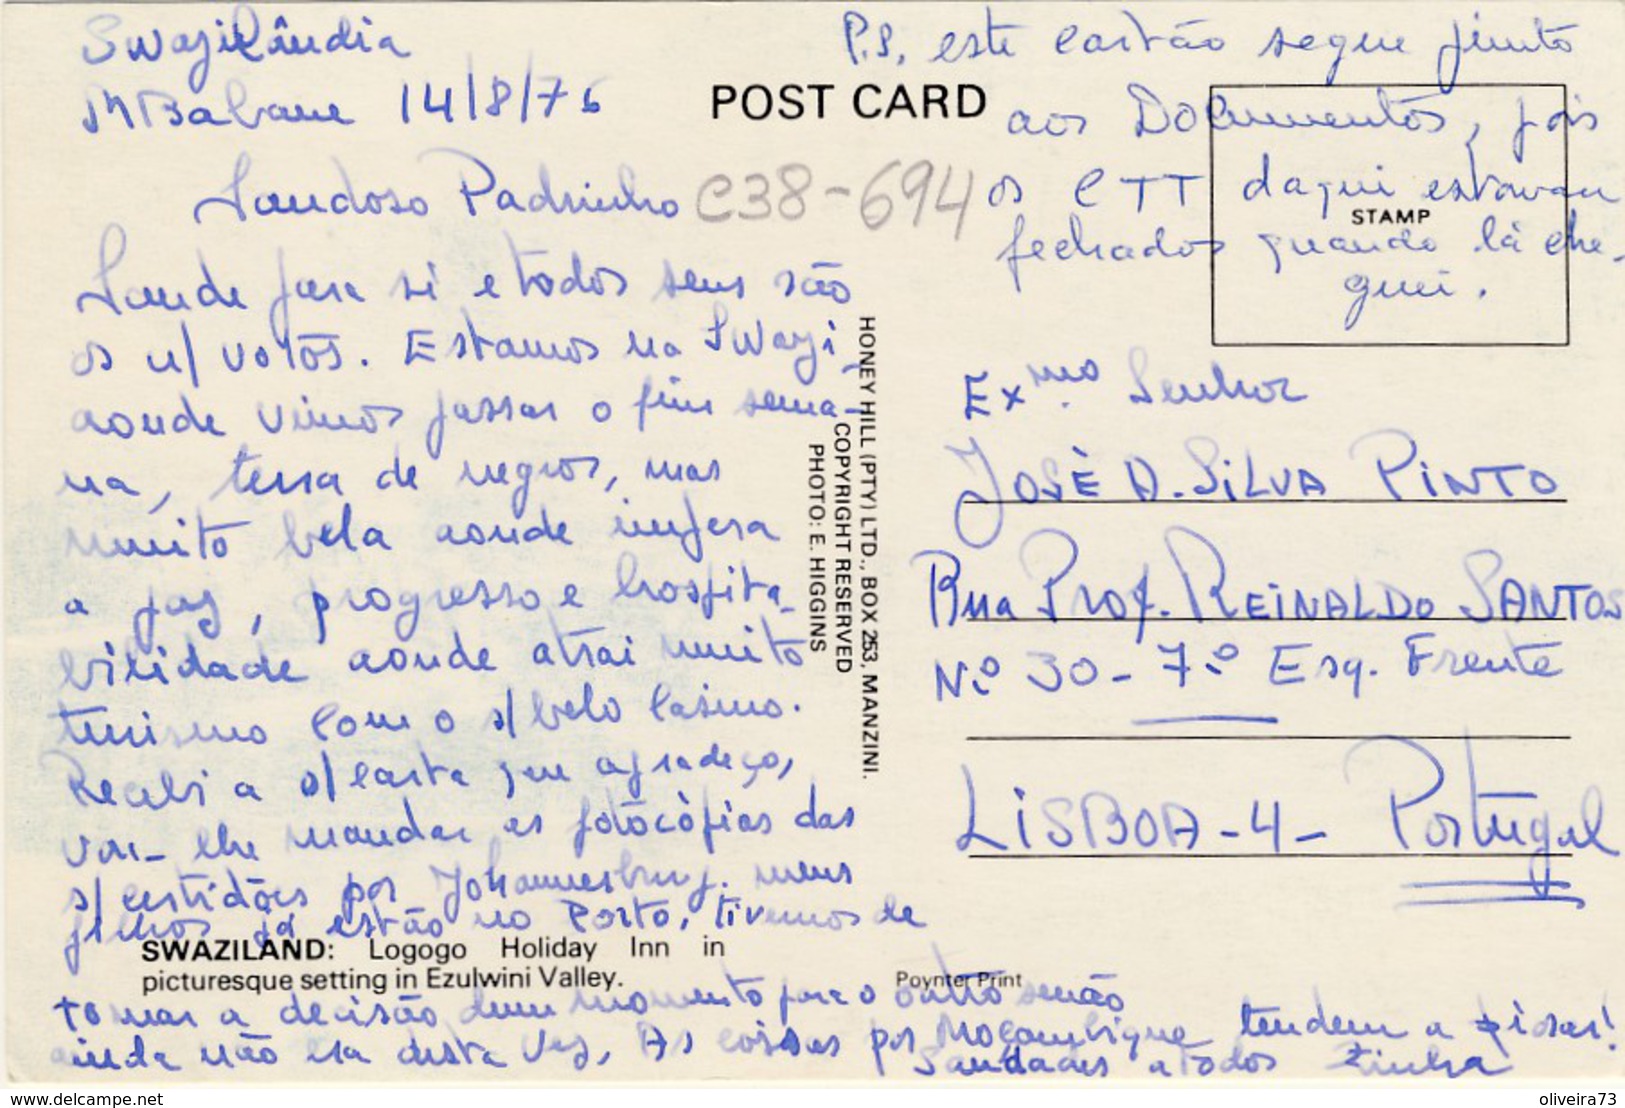 Swazilândia
MBabane 14/8/76
POST CARD
Saudoso Padrinho
C38-694
Saude para si e todos seus são
os n/ votos. Estamos na Swazi
aonde vimos passar o fim sema-
na, terra de negros, mas
muito bela aonde impera
a paz, progresso e hospita-
bilidade aonde atrai muito
turismo com o s/ belo Casino.
Recebi a s/ carta que agradeço,
vou-lhe mandar as fotocòpias das
s/ certidões por Johannesburg. meus
filhos já estão no Porto, tivemos de
tomar a decisão dum momento para o outro senão
ainda não era desta vez. As coisas por Moçambique tendem a piorar!
Saudades a todos Zinha
SWAZILAND: Logogo Holiday Inn in
picturesque setting in Ezulwini Valley.
HONEY HILL (PTY) LTD., BOX 253, MANZINI.
COPYRIGHT RESERVED
PHOTO: E. HIGGINS
Poynter Print
P.S. este cartão segue junto
aos Documentos, pois
os CTT daqui estavam
fechados quando lá che-
guei.
STAMP
Exmo. Senhor
JOSÈ D. SiLVA PiNTO
Rua Prof. REiNALDO SANTOS
Nº 30-7º Esq. Frente
LiSBOA-4- Portugal
oliveira73 at delcampe.net
oliveira73